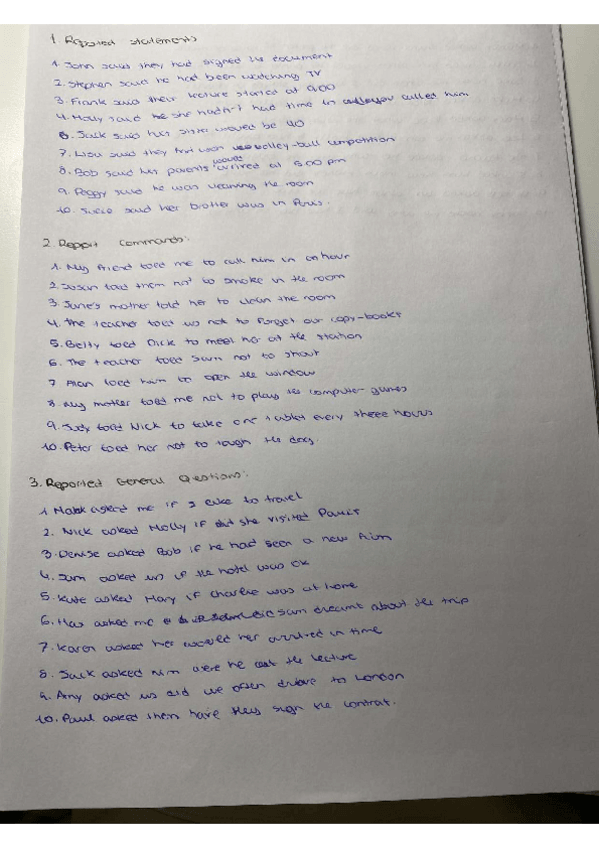 1. Reported statements
1. John said they had signed the document
2. Stephen said he had been watching TV
3. Frank said their lecture started at 9.00
4. Molly said she hadn't had time in called him
6. Jack said his sister would be 40
7. Lisa said they had won volley-ball competition
8. Bob said his parents would arrived at 5.00 pm
9. Peggy said he was cleaning the room
10. said her brother was in Paris.
2. Report Commands:
1. My friend told me to call him in an hour
2. Susan told them not to smoke in the room
3. Jane's mother told her to clean the room
4. The teacher told us not to forget our copy-books
5. Betty told Dick to meet her at the station
6. The teacher told Sam not to shout
7. Alan told him to open the window
8. My mother told me not to play the computer games
9. Judy told Nick to take one tablet every three hours
10. Peter told her not to tough the dog.
3. Reported General Questions:
1. Mark asked me if I like to travel
2. Nick asked Molly if did she visited Paris
3. Denise asked Bob if he had seen a new film
4. Sam asked us if the hotel was OK
5. Kate asked Mary if Charlie was at home
6. asked me if Sam dreamt about the trip
7. Karen asked her would her arrived in time
8. Jack asked him were he at the lecture
9. Amy asked us did we often drove to London
10. Paul asked them have they sign the contrat.